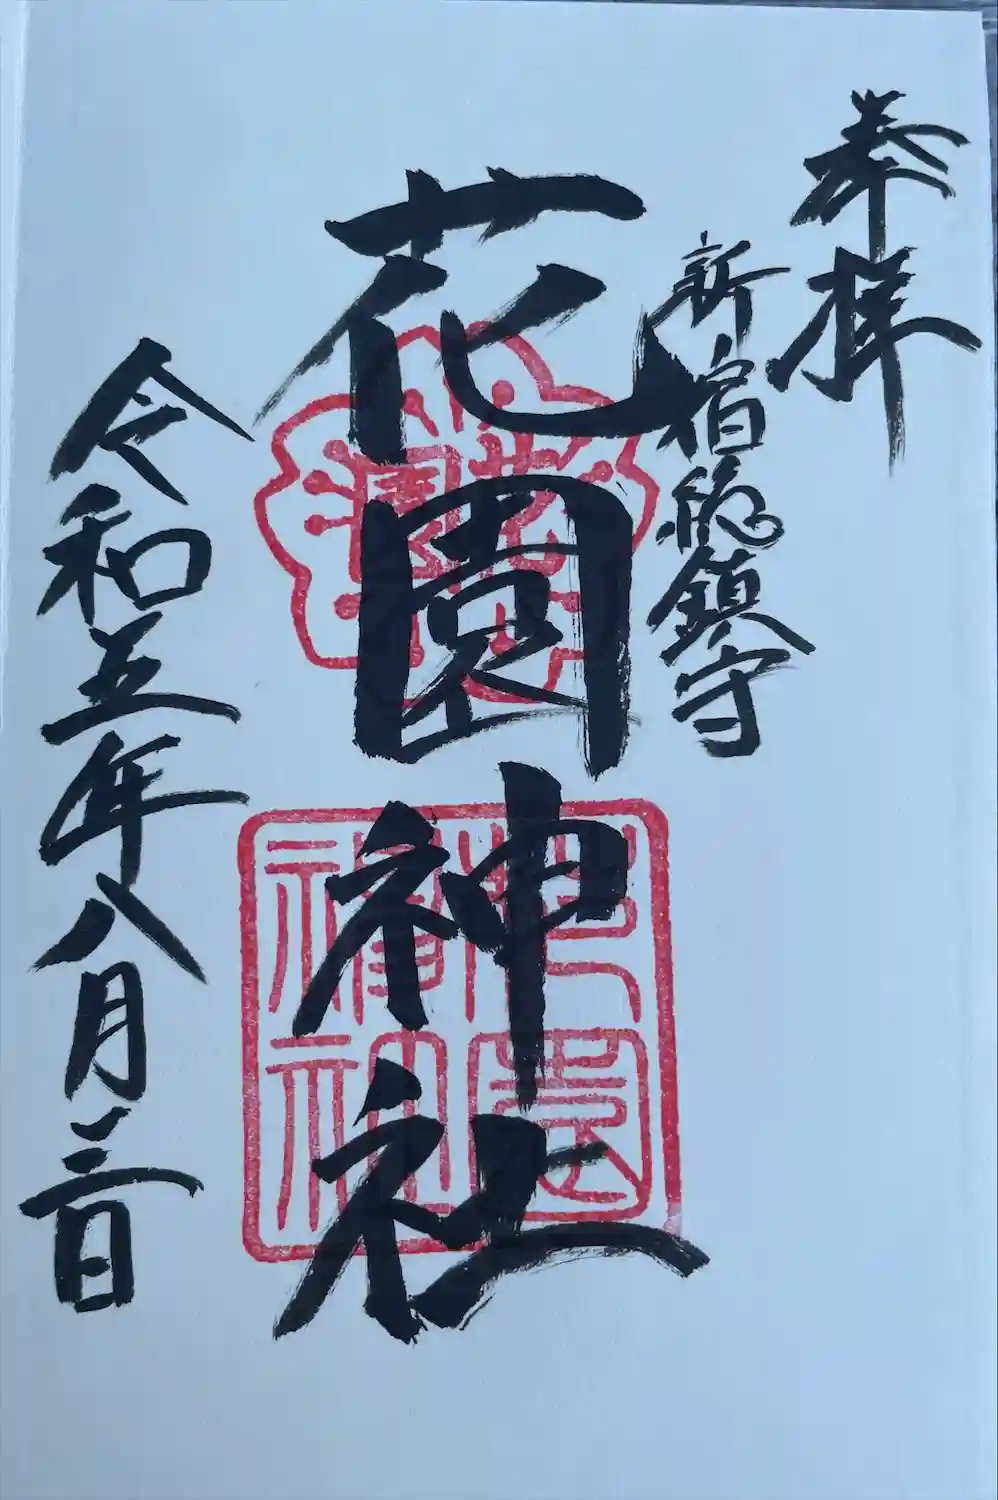 奉拝
新宿総鎮守
花園神社
花園
花園
神社
令和五年八月三日